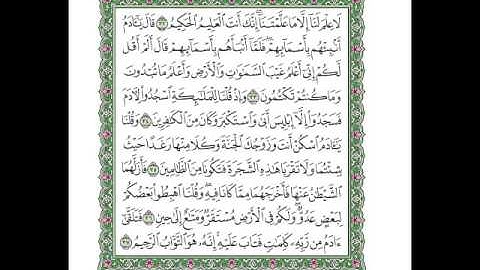 لَا عِلْمَ لَنَآ إِلَّا مَا عَلَّمْتَنَآ ۖ إِنَّكَ أَنتَ ٱلْعَلِيمُ ٱلْحَكِيمُ ٣٢ قَالَ يَٰٓـَٔادَمُ
أَنۢبِئْهُم بِأَسْمَآئِهِمْ ۖ فَلَمَّآ أَنۢبَأَهُم بِأَسْمَآئِهِمْ قَالَ أَلَمْ أَقُل
لَّكُمْ إِنِّىٓ أَعْلَمُ غَيْبَ ٱلسَّمَٰوَٰتِ وَٱلْأَرْضِ وَأَعْلَمُ مَا تُبْدُونَ
وَمَا كُنتُمْ تَكْتُمُونَ ٣٣ وَإِذْ قُلْنَا لِلْمَلَٰٓئِكَةِ ٱسْجُدُوا۟ لِءَادَمَ
فَسَجَدُوٓا۟ إِلَّآ إِبْلِيسَ أَبَىٰ وَٱسْتَكْبَرَ وَكَانَ مِنَ ٱلْكَٰفِرِينَ ٣٤ وَقُلْنَا
يَٰٓـَٔادَمُ ٱسْكُنْ أَنتَ وَزَوْجُكَ ٱلْجَنَّةَ وَكُلَا مِنْهَا رَغَدًا حَيْثُ
شِئْتُمَا وَلَا تَقْرَبَا هَٰذِهِ ٱلشَّجَرَةَ فَتَكُونَا مِنَ ٱلظَّٰلِمِينَ ٣٥ فَأَزَلَّهُمَا
ٱلشَّيْطَٰنُ عَنْهَا فَأَخْرَجَهُمَا مِمَّا كَانَا فِيهِ ۖ وَقُلْنَا ٱهْبِطُوا۟ بَعْضُكُمْ
لِبَعْضٍ عَدُوٌّ ۖ وَلَكُمْ فِى ٱلْأَرْضِ مُسْتَقَرٌّ وَمَتَٰعٌ إِلَىٰ حِينٍ ٣٦ فَتَلَقَّىٰٓ
ءَادَمُ مِن رَّبِّهِۦ كَلِمَٰتٍ فَتَابَ عَلَيْهِ ۚ إِنَّهُۥ هُوَ ٱلتَّوَّابُ ٱلرَّحِيمُ ٣٧